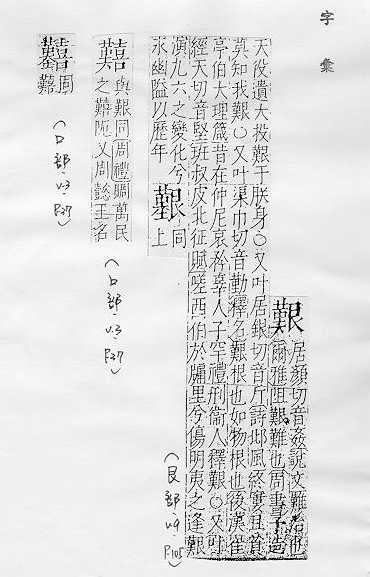 字彙
艱
居顏切音姦說文難治也
爾雅阻艱難也周書予造
天役遺大投艱于朕身○又叶居銀切音斤詩邶風終窶且貧
莫知我艱○又叶渠巾切音勤釋名艱根也如物根也後漢崔
亭伯大理箴昔在仲尼哀矜辜人子罕禮刑衞人釋艱○又叶
經天切音堅班叔皮北征賦嗟西伯於牖里兮傷明夷之逢艱
演九六之變化兮
永幽隘以歷年
同
上
(艮部.v.9.P.105)
囏
與艱同周禮賙萬民
之囏阨又周懿王名
(口部.v.3 P.27)
同
囏
(口部.v.3.P.27)